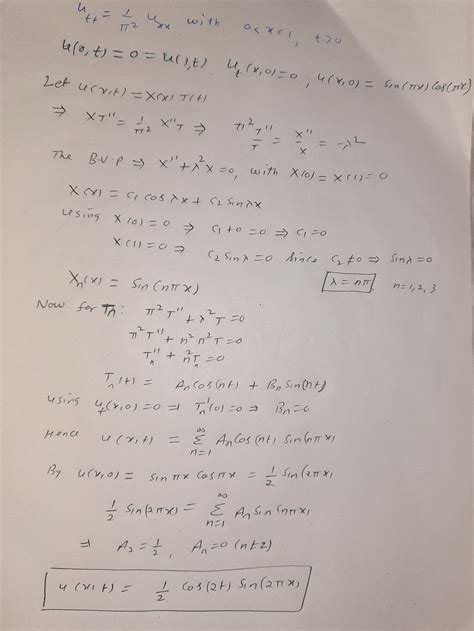 u_tt = 1/π² u_xx with 0<x<1, t>0
u(0,t)=0=u(1,t), u_t(x,0)=0, u(x,0) = sin(πx)cos(πx)
Let u(x,t) = X(x) T(t)
⇒ XT'' = 1/π² X''T ⇒ π² T''/T = X''/X = -λ²
The B.V.P ⇒ X''+λ²X=0, with X(0)=X(1)=0
X(x) = c₁ cos λx + c₂ sin λx
using X(0)=0 ⇒ c₁+0=0 ⇒ c₁=0
X(1)=0 ⇒ c₂ sinλ=0 since c₂≠0 ⇒ sinλ=0
Xₙ(x) = sin(nπx) λ=nπ, n=1,2,3
Now for Tₙ: π²T''+λ²T=0
π²T''+n²π²T=0
Tₙ''+n²Tₙ=0
Tₙ(t) = Aₙcos(nt) + Bₙsin(nt)
using u_t(x,0)=0 ⇒ Tₙ'(0)=0 ⇒ Bₙ=0
Hence u(x,t) = ∑_{n=1}^∞ Aₙcos(nt) sin(nπx)
By u(x,0) = sin πx cos πx = 1/2 sin(2πx)
1/2 sin(2πx) = ∑_{n=1}^∞ Aₙ sin(nπx)
⇒ A₂=1/2, Aₙ=0 (n≠2)
u(x,t) = 1/2 cos(2t) sin(2πx)